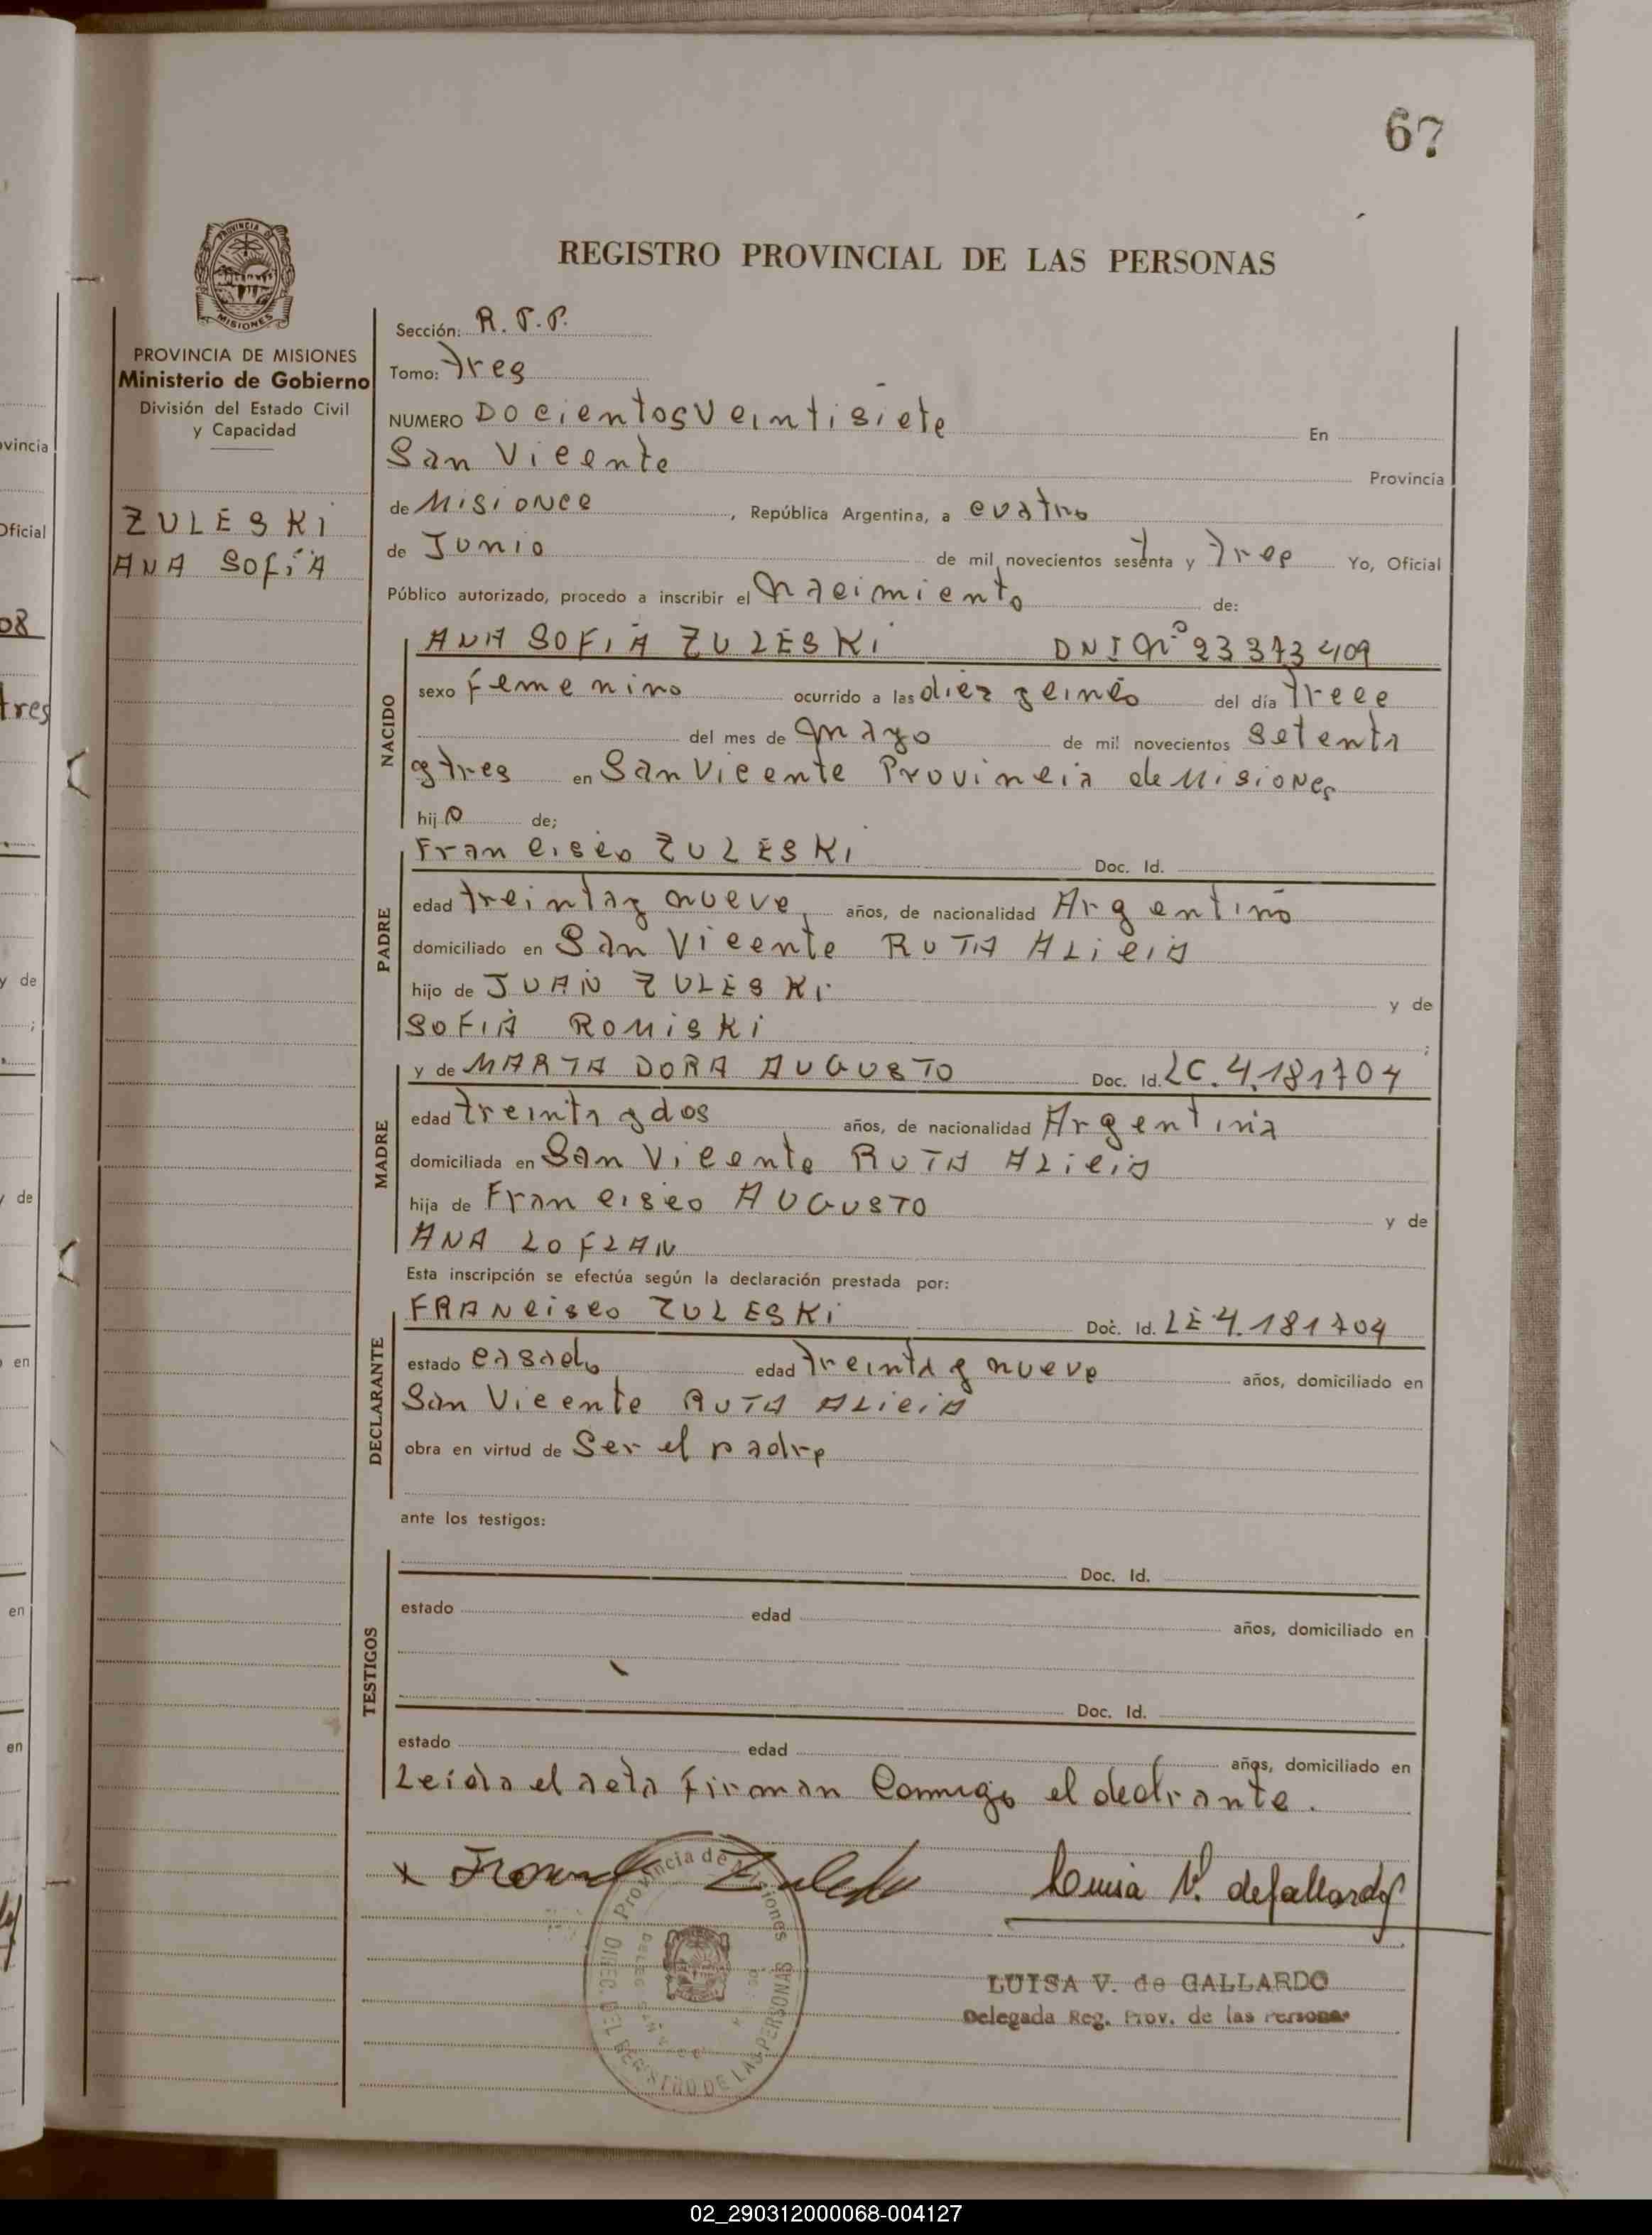 67
PROVINCIA DE
MISIONES
REGISTRO PROVINCIAL DE LAS PERSONAS
PROVINCIA DE MISIONES
Ministerio de Gobierno
División del Estado Civil
y Capacidad
ZULESKI
ANA SOFÍA
Sección: R.P.P.
Tomo: tres
NUMERO Docientosveintisiete En
San Vicente Provincia
de Misiones, República Argentina, a cuatro
de Junio de mil novecientos sesenta y tres Yo, Oficial
Público autorizado, procedo a inscribir el nacimiento de:
NACIDO
ANA SOFIA ZULESKI DNI Nº 23 373 409
sexo femenino ocurrido a las diez y cinco del día trece
del mes de mayo de mil novecientos setenta
y tres en San Vicente Provincia de Misiones
hijo de;
PADRE
Francisco ZULESKI Doc. Id.
edad treinta y nueve años, de nacionalidad Argentino
domiciliado en San Vicente RUTA ALiciA
hijo de JUAN ZULESKi y de
SOFIA ROMISKi ;
MADRE
y de MARTA DORA AUGUSTO Doc. Id. LC. 4.181704
edad treinta y dos años, de nacionalidad Argentina
domiciliada en San Vicente RUTA ALiciA
hija de Francisco AUGUSTO y de
ANA LOFLAN
Esta inscripción se efectúa según la declaración prestada por:
DECLARANTE
FRANcisco ZULESKi Doc. Id. LE 4.181704
estado casado edad treinta y nueve años, domiciliado en
San Vicente RUTA ALiciA
obra en virtud de Ser el padre
ante los testigos:
TESTIGOS
Doc. Id.
estado edad años, domiciliado en
Doc. Id.
estado edad años, domiciliado en
Leída el acta firman Conmigo el declrante.
x Zuleski Luisa V. de Gallardo
Provincia de Misiones
DIREC. DEL REGISTRO DE LAS PERSONAS
LUISA V. de GALLARDO
Delegada Reg. Prov. de las Personas
vincia
Oficial
08
tres
y de
;
y de
en
en
en
02_290312000068-004127